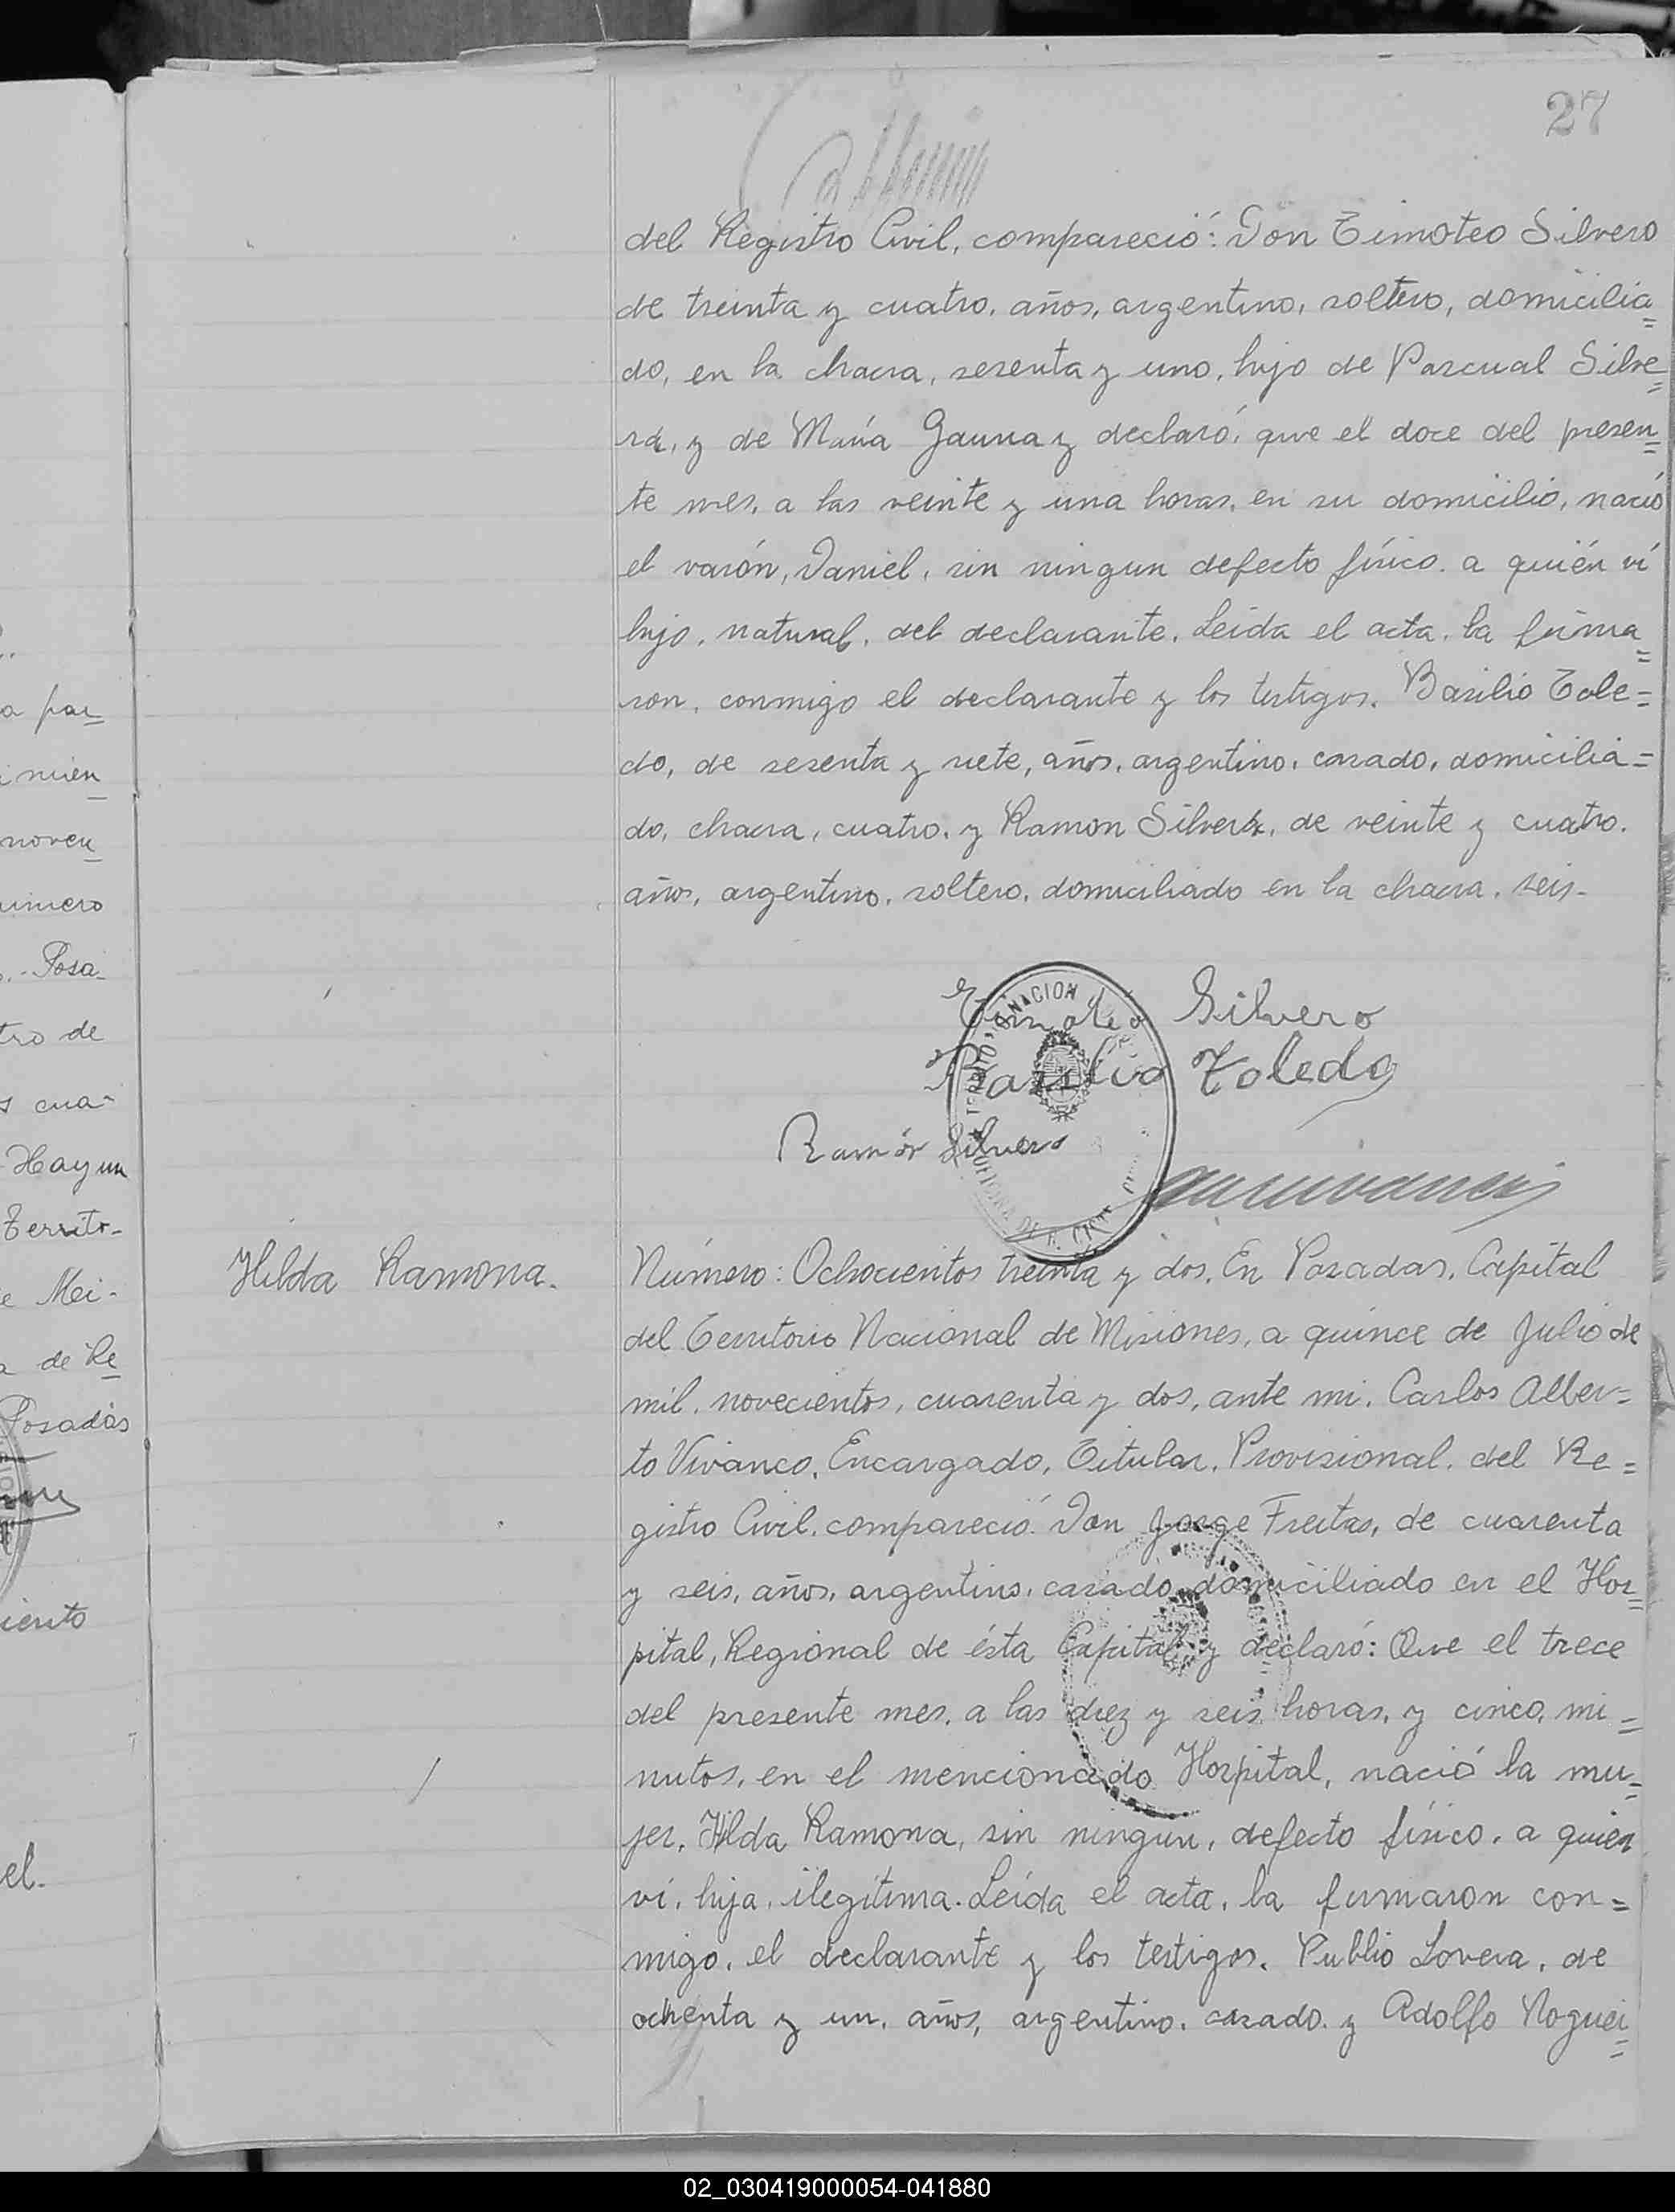 27
del Registro Civil, compareció: Don Timoteo Silvero
de treinta y cuatro, años, argentino, soltero, domicilia=
do, en la chacra, sesenta y uno, hijo de Pascual Silve=
ra, y de María Gauna y declaró, que el doce del presen=
te mes, a las veinte y una horas, en su domicilio, nació
el varón, Daniel, sin ningun defecto físico. a quién ví
hijo, natural, del declarante. Leída el acta, la firma=
ron, conmigo el declarante y los testigos. Basilio Tole=
do, de sesenta y siete, años, argentino, casado, domicilia=
do, chacra, cuatro, y Ramon Silvero, de veinte y cuatro.
años, argentino, soltero, domiciliado en la chacra, seis-
Timoteo Silvero
Basilio Toledo
Ramón Silvero
Hilda Ramona.
Número: Ochocientos treinta y dos. En Posadas, Capital
del Territorio Nacional de Misiones, a quince de Julio de
mil, novecientos, cuarenta y dos, ante mi, Carlos Alber=
to Vivanco, Encargado, Titular, Provisional, del Re=
gistro Civil, compareció Don Jorge Freitas, de cuarenta
y seis, años, argentino, casado, domiciliado en el Hos=
pital, Regional de ésta Capital y declaró: Que el trece
del presente mes, a las diez y seis horas, y cinco, mi=
nutos, en el mencionado Hospital, nació la mu=
jer, Hilda Ramona, sin ningun, defecto físico, a quien
ví, hija, ilegítima. Leída el acta, la firmaron con=
migo, el declarante y los testigos. Publio Lovera, de
ochenta y un, años, argentino, casado. y Adolfo Noguei=
a par=
mien
noven
- Posa-
tro de
s cua-
Hay un
Territo-
e Mei-
a de Re
Posadas
iento
el.
02_030419000054-041880